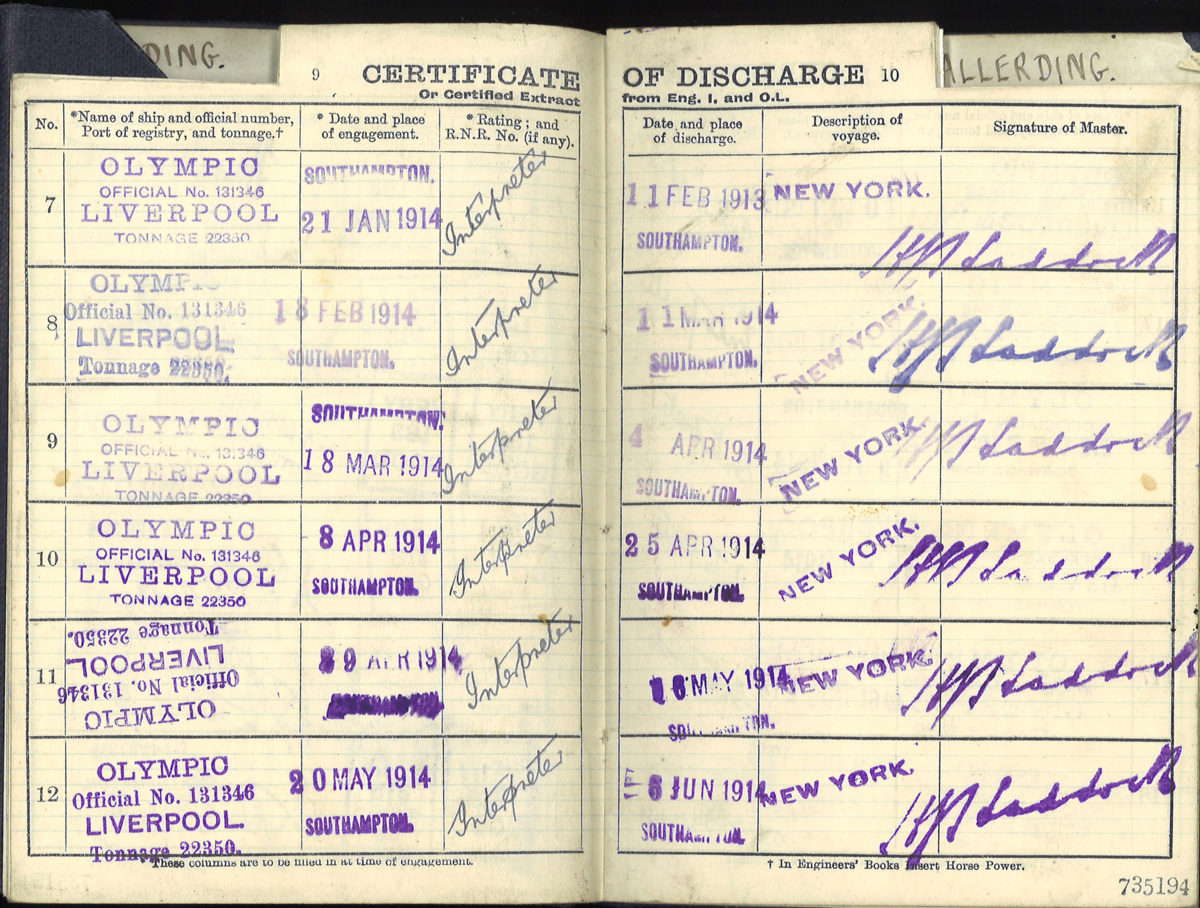 DING.
ALLERDING.
9 CERTIFICATE OF DISCHARGE 10
Or Certified Extract from Eng. 1. and O.L.
No.
*Name of ship and official number, Port of registry, and tonnage.†
* Date and place of engagement.
* Rating; and R.N.R. No. (if any).
Date and place of discharge.
Description of voyage.
Signature of Master.
7
OLYMPIC
OFFICIAL No. 131346
LIVERPOOL
TONNAGE 22350
SOUTHAMPTON.
21 JAN 1914
Interpreter
11 FEB 1913
SOUTHAMPTON.
NEW YORK.
8
OLYMPIC
Official No. 131346
LIVERPOOL
Tonnage 22350.
18 FEB 1914
SOUTHAMPTON.
Interpreter
11 MAR 1914
SOUTHAMPTON.
NEW YORK.
9
OLYMPIC
OFFICIAL No. 131346
LIVERPOOL
TONNAGE 22350
SOUTHAMPTON.
18 MAR 1914
Interpreter
4 APR 1914
SOUTHAMPTON.
NEW YORK.
10
OLYMPIC
OFFICIAL No. 131346
LIVERPOOL
TONNAGE 22350
8 APR 1914
SOUTHAMPTON.
Interpreter
25 APR 1914
SOUTHAMPTON.
NEW YORK.
11
OLYMPIC
Official No. 131346
LIVERPOOL
Tonnage 22350.
APR 1914
SOUTHAMPTON
Interpreter
16 MAY 1914
SOUTHAMPTON.
NEW YORK.
12
OLYMPIC
Official No. 131346
LIVERPOOL.
Tonnage 22350.
20 MAY 1914
SOUTHAMPTON.
Interpreter
6 JUN 1914
SOUTHAMPTON.
NEW YORK.
*These columns are to be filled in at time of engagement.
† In Engineers' Books Insert Horse Power.
735194